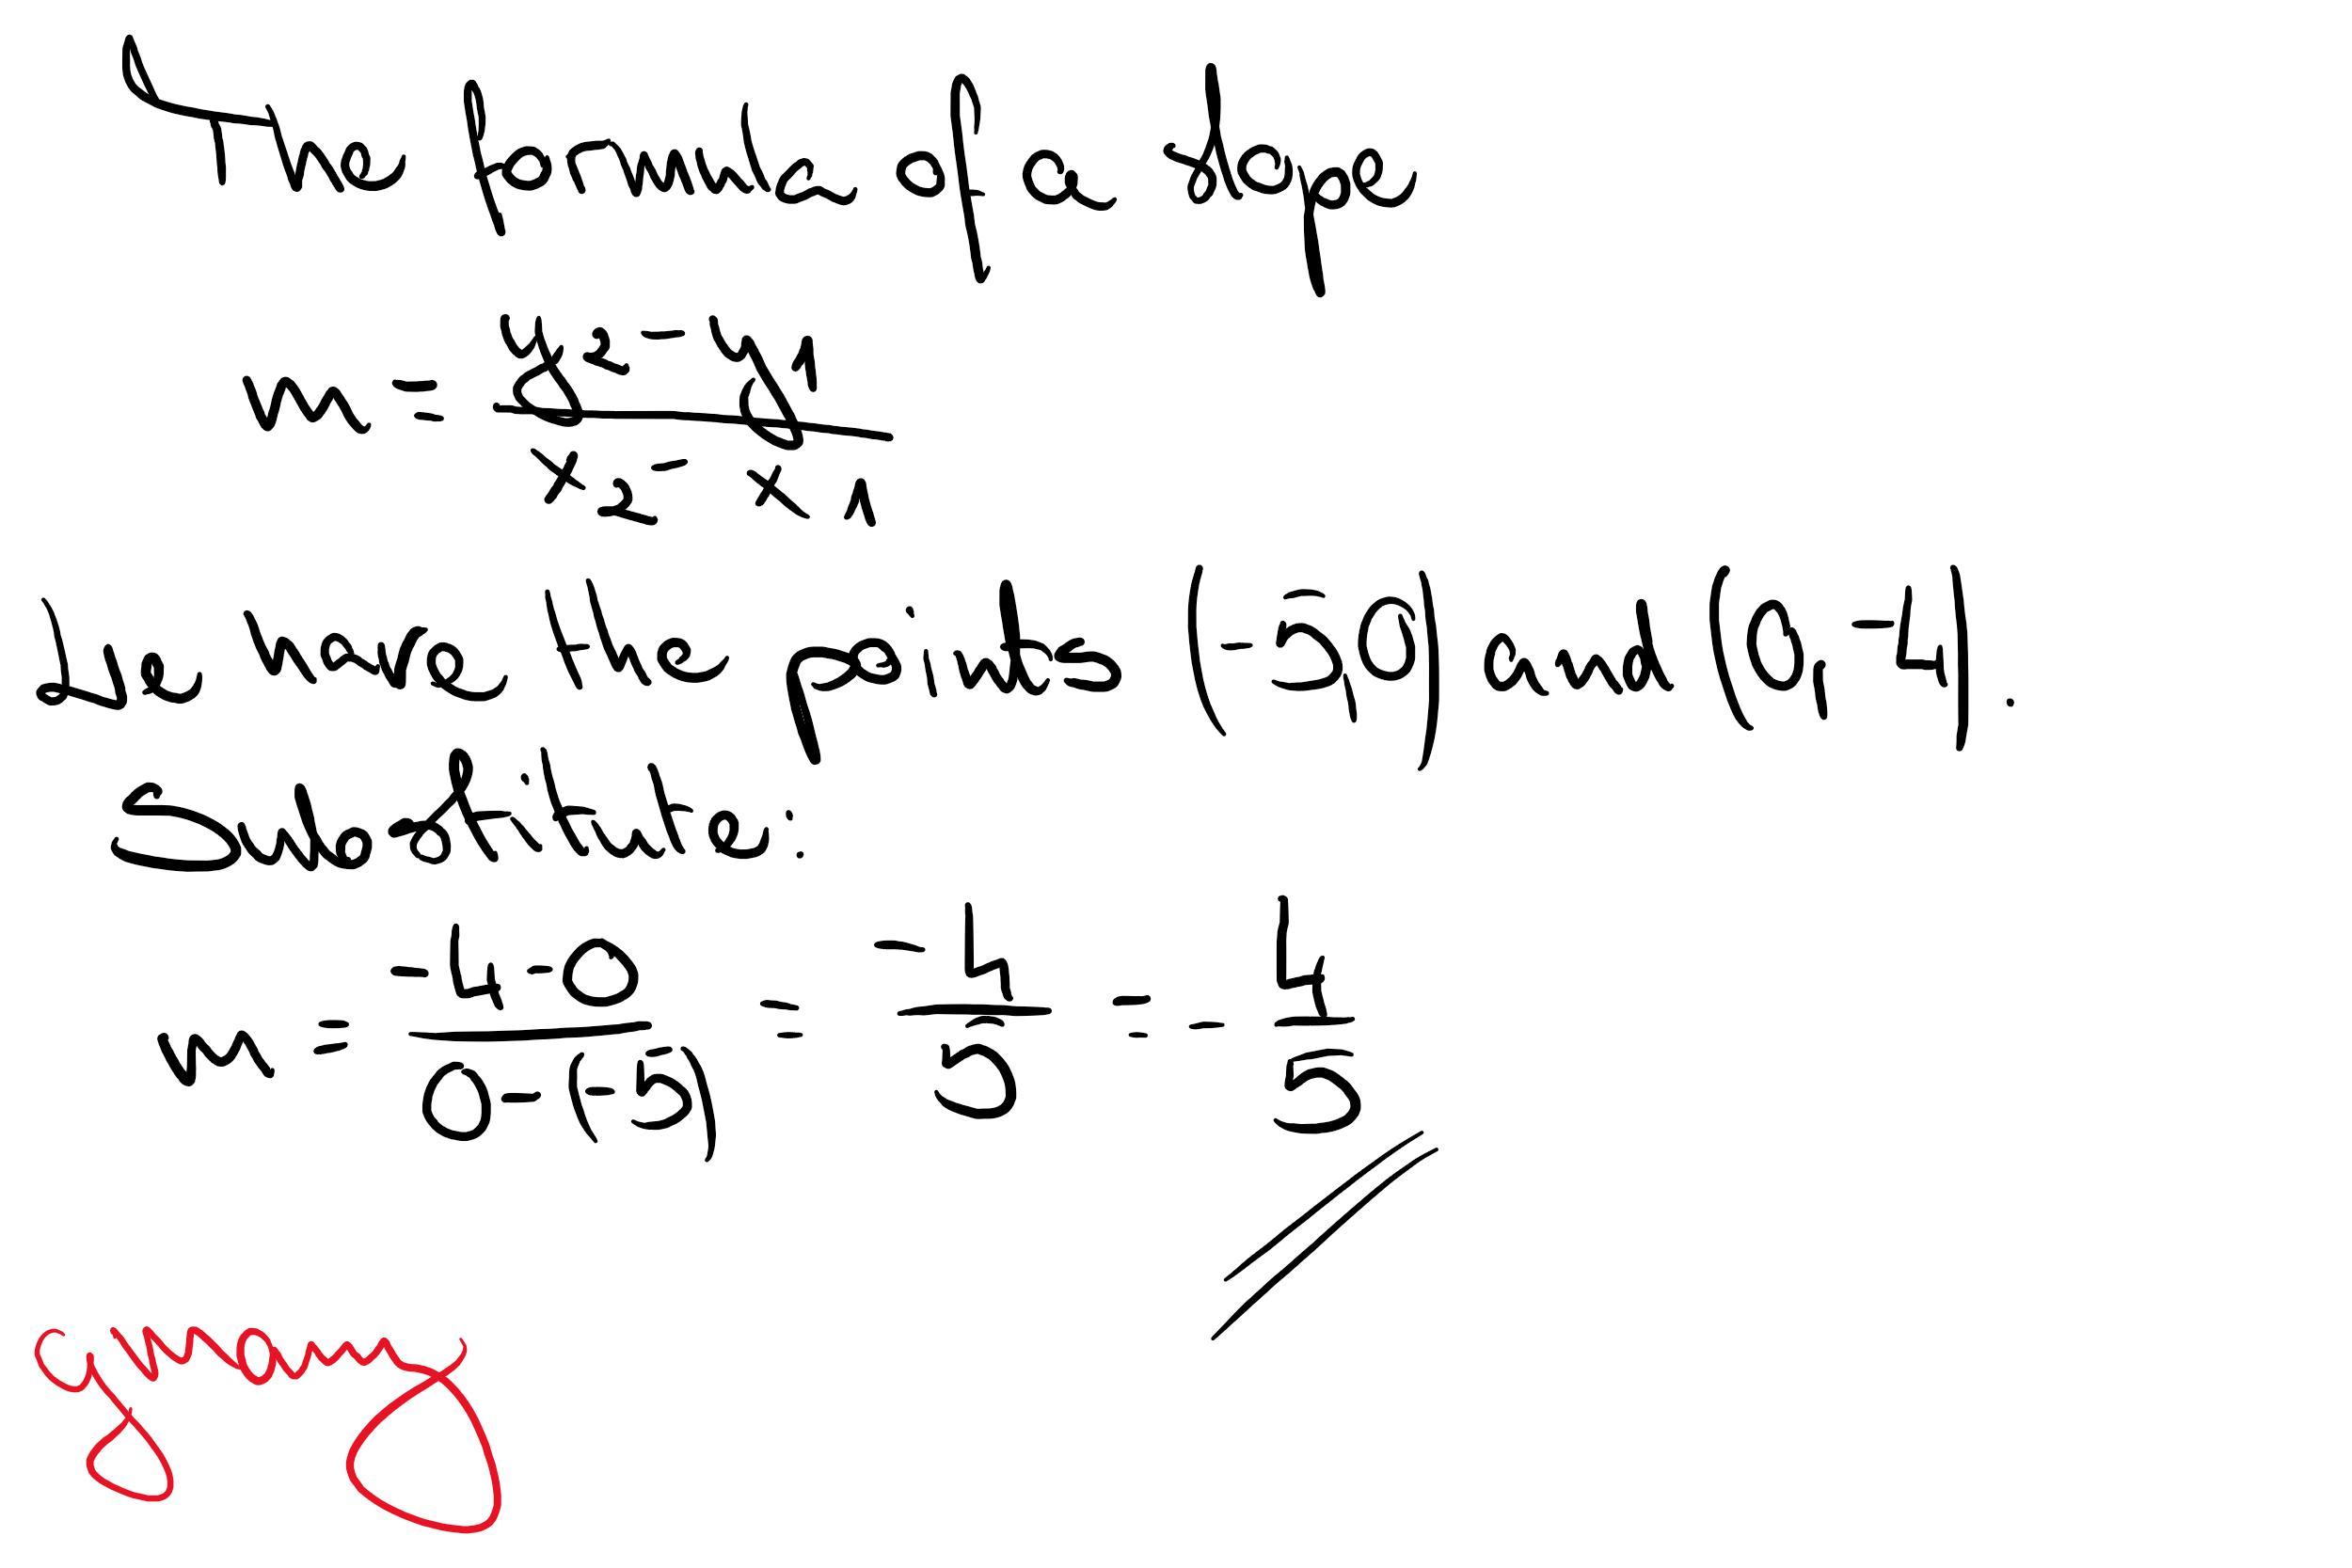 The formula of a slope
m = y2 - y1 / x2 - x1
We have the points (-5,0) and (0,-4).
Substitute:
m = -4-0 / 0-(-5) = -4/5 = - 4/5